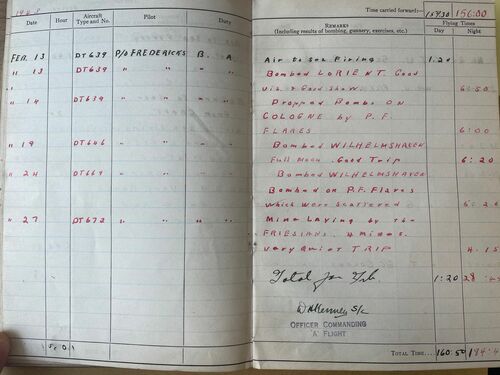 1943
Date Hour Aircraft Type and No. Pilot Duty
FEB. 13 DT639 P/O FREDERICKS B. A
" 13 DT639 " " " "
" 14 DT639 " " " "
" 19 DT646 " " " "
" 24 DT669 " " " "
" 27 DT672 " " " "
Time carried forward:— 156:00
REMARKS
(Including results of bombing, gunnery, exercises, etc.)
Flying Times
Day Night
Air to sea Firing 1.20
Bombed LORIENT Good
Vis & Good show. 6:50
Dropped Bombs ON
COLOGNE by P.F.
FLARES 6:00
Bombed WILHELMSHAVEN
Full Moon. Good Trip 6:20
Bombed WILHELMSHAVEN
Bombed on P.F. Flares
which were scattered 5:20
Mine Laying by the
FRIESIANS. 4 mines.
Very Quiet TRIP 4.15
Total for Feb. 1:20 28
S/L
OFFICER COMMANDING
'A' FLIGHT
TOTAL TIME... 160:50 184:4